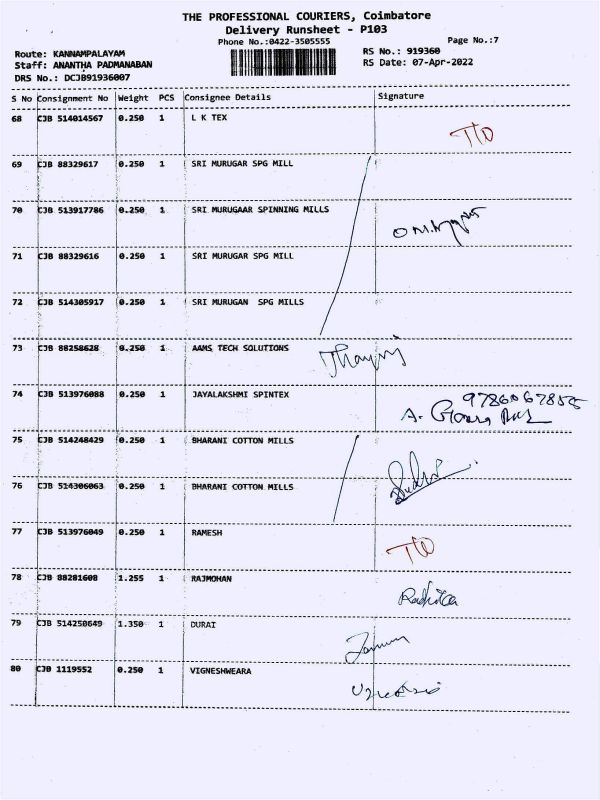 THE PROFESSIONAL COURIERS, Coimbatore
Delivery Runsheet - P103
Phone No.:0422-3505555
Page No.:7
Route: KANNAMPALAYAM
RS No.: 919360
Staff: ANANTHA PADMANABAN
RS Date: 07-Apr-2022
DRS No.: DCJB91936007
S No Consignment No Weight PCS Consignee Details Signature
68 CJB 514014567 0.250 1 L K TEX
T/O
69 CJB 88329617 0.250 1 SRI MURUGAR SPG MILL
70 CJB 513917786 0.250 1 SRI MURUGAAR SPINNING MILLS
71 CJB 88329616 0.250 1 SRI MURUGAR SPG MILL
72 CJB 514305917 0.250 1 SRI MURUGAN SPG MILLS
73 CJB 88258628 0.250 1 AAMS TECH SOLUTIONS
74 CJB 513976088 0.250 1 JAYALAKSHMI SPINTEX
A.
75 CJB 514248429 0.250 1 BHARANI COTTON MILLS
76 CJB 514306063 0.250 1 BHARANI COTTON MILLS
77 CJB 513976049 0.250 1 RAMESH
T/O
78 CJB 88281608 1.255 1 RAJMOHAN
79 CJB 514250649 1.350 1 DURAI
80 CJB 1119552 0.250 1 VIGNESHWEARA